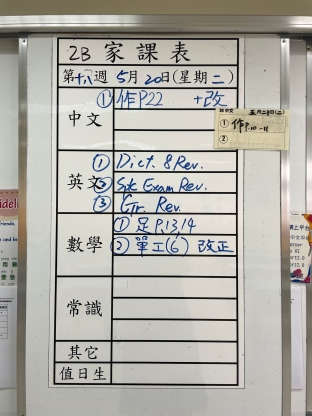 2B 家課表
第十八週 5月20日(星期二)
中文
① 作P22 +改
五月二十日(二)
① 作P.10-11
②
英文
① Dict. 8 Rev.
② Spk Exam Rev.
③ Gr. Rev.
數學
① 足P.13,14
② 單工(6) 改正
常識
其它
值日生